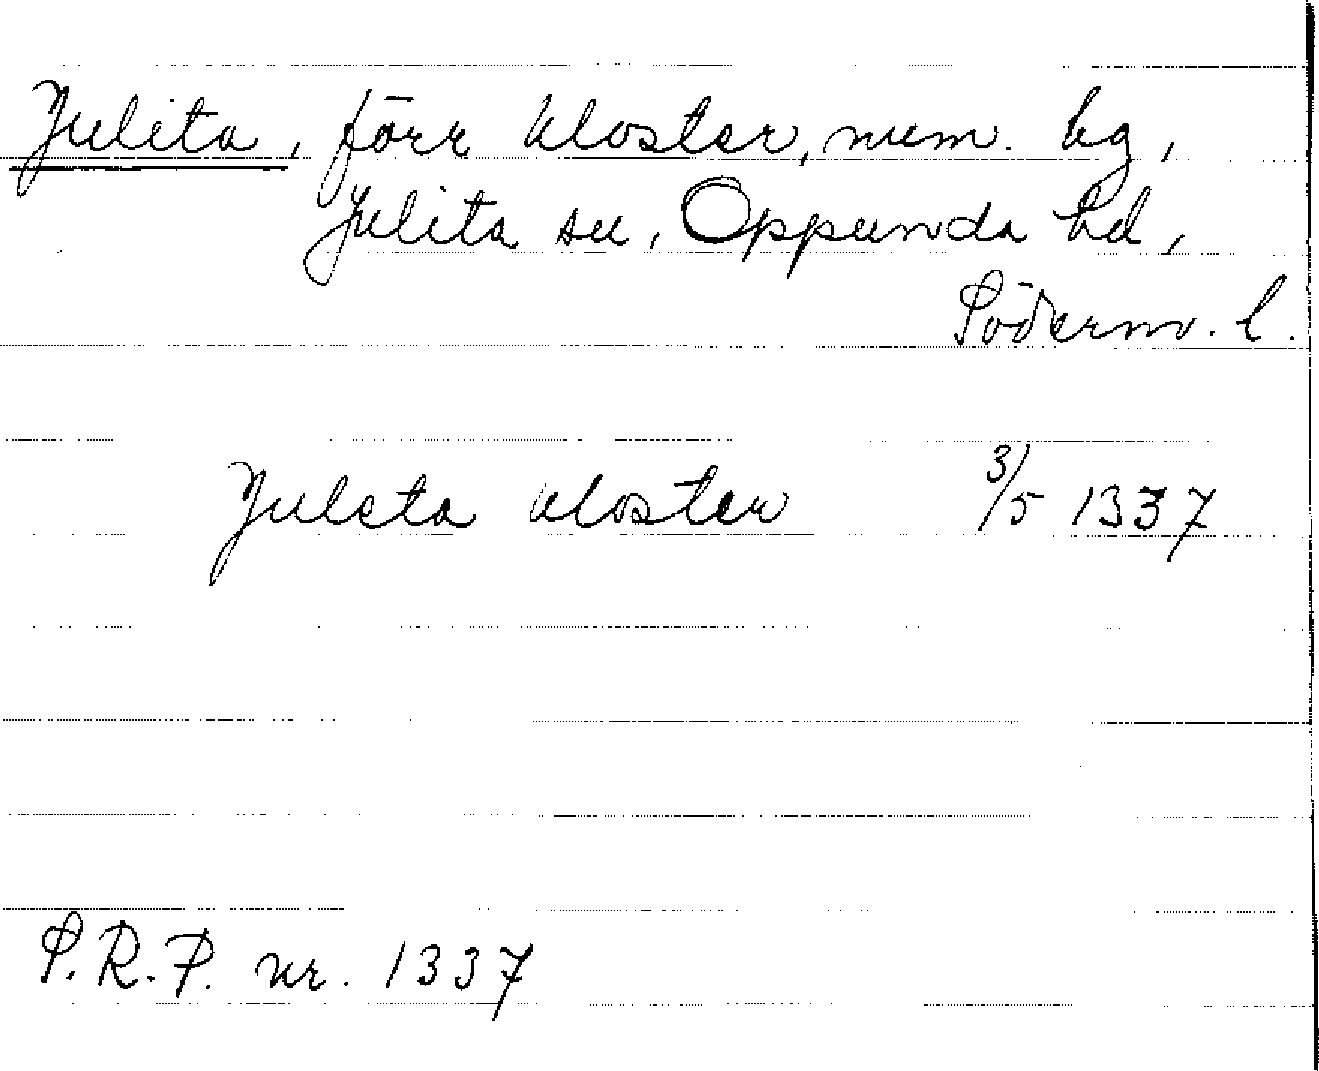 Julita, förr kloster, num. hg,
Julita sn, Oppunda hd,
Söderm. l.
Juleta kloster 3/5 1337
S.R.P. nr. 1337